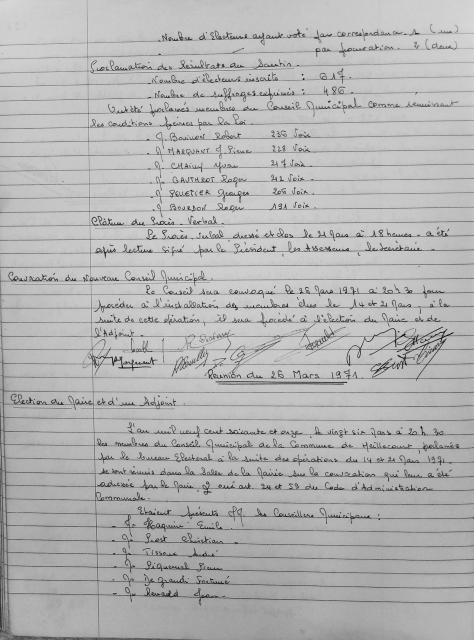 Nombre d'Electeurs ayant voté par correspondance 1 (un)
par procuration. 2 (deux)
Proclamation des Résultats du Scrutin.
Nombre d'électeurs inscrits : 617.
Nombre de suffrages exprimés : 486.
Ont été proclamés membres du Conseil Municipal comme remplissant
les conditions fixées par la loi.
- M. Robert 236 Voix
- M. MARQUANT J. Pierre 228 Voix
- M. Yvan 217 Voix.
- M. GAUTHROT Roger 212 Voix.
- M. PELLETIER Georges 205 Voix.
- M. BOURDON Roger 191 Voix.
Clôture du Procès-Verbal.
Le Procès-Verbal dressé et clos le 21 Mars à 18 heures a été
après lecture signé par le Président, les Assesseurs, le Secrétaire.
Convocation du Nouveau Conseil Municipal.
Le Conseil sera convoqué le 26 Mars 1971 à 20 h 30 pour
procéder à l'installation des membres élus le 14 et 21 Mars, à la
suite de cette opération, il sera procédé à l'élection du Maire et de
l'Adjoint.
Réunion du 26 Mars 1971.
Election du Maire et d'un Adjoint.
L'an mil neuf cent soixante et onze, le vingt six Mars à 20 h. 30
les membres du Conseil Municipal de la Commune de proclamés
par le bureau Electoral à la suite des opérations du 14 et 21 Mars 1971.
se sont réunis dans la Salle de la Mairie sur la convocation qui leur a été
adressée par le Maire art. 24 et 59 du Code d'Administration
Communale.
Etaient présents les Conseillers Municipaux :
- M. Emile
- M. Christian.
- M. Tissant André
- M.
- M. De Grandi Fortuné
- M. Renard Jean.